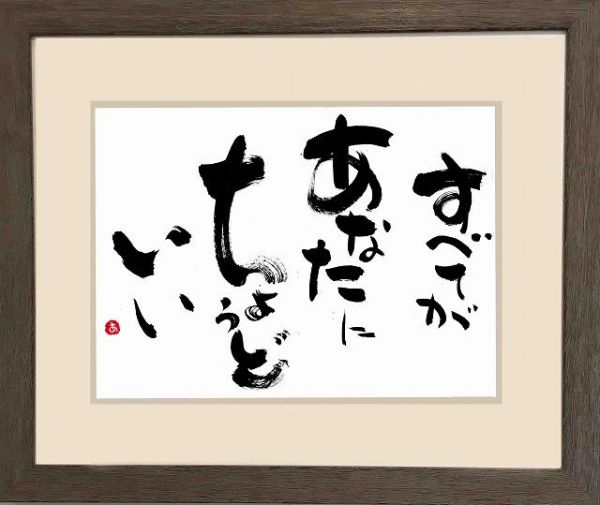 すべてが
あなたに
ちょうど
いい
あ